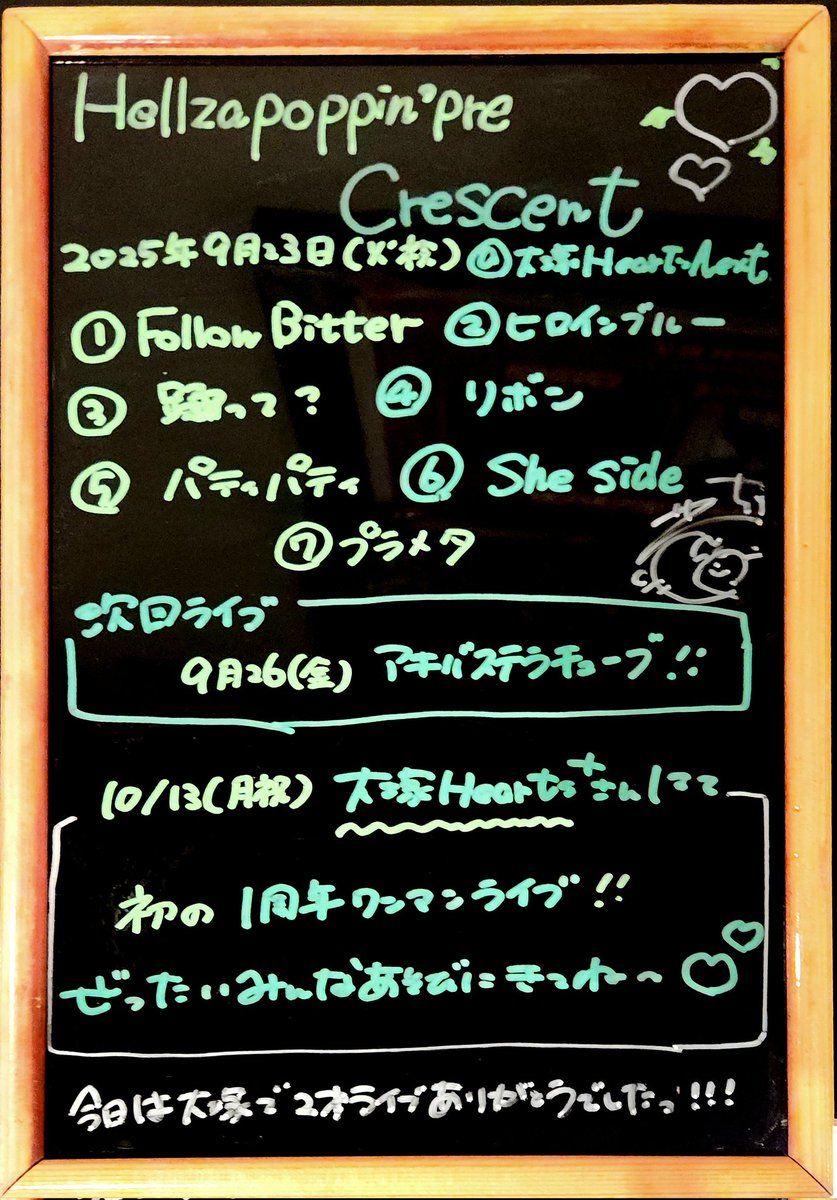 Hellzapoppin'pre
Crescent
2025年9月23日(火・祝) @大塚Hearts Next
① Follow Bitter ② ヒロインブルー
③ 踊って? ④ リボン
⑤ パティパティ ⑥ She side
⑦ プラメタ
次回ライブ
9月26(金) アキバステラチューブ!!
10/13(月祝) 大塚Hearts+さんにて
初の 1周年ワンマンライブ!!
ぜったいみんなあそびにきてね〜
今日は大塚で2本ライブありがとうでしたっ!!!